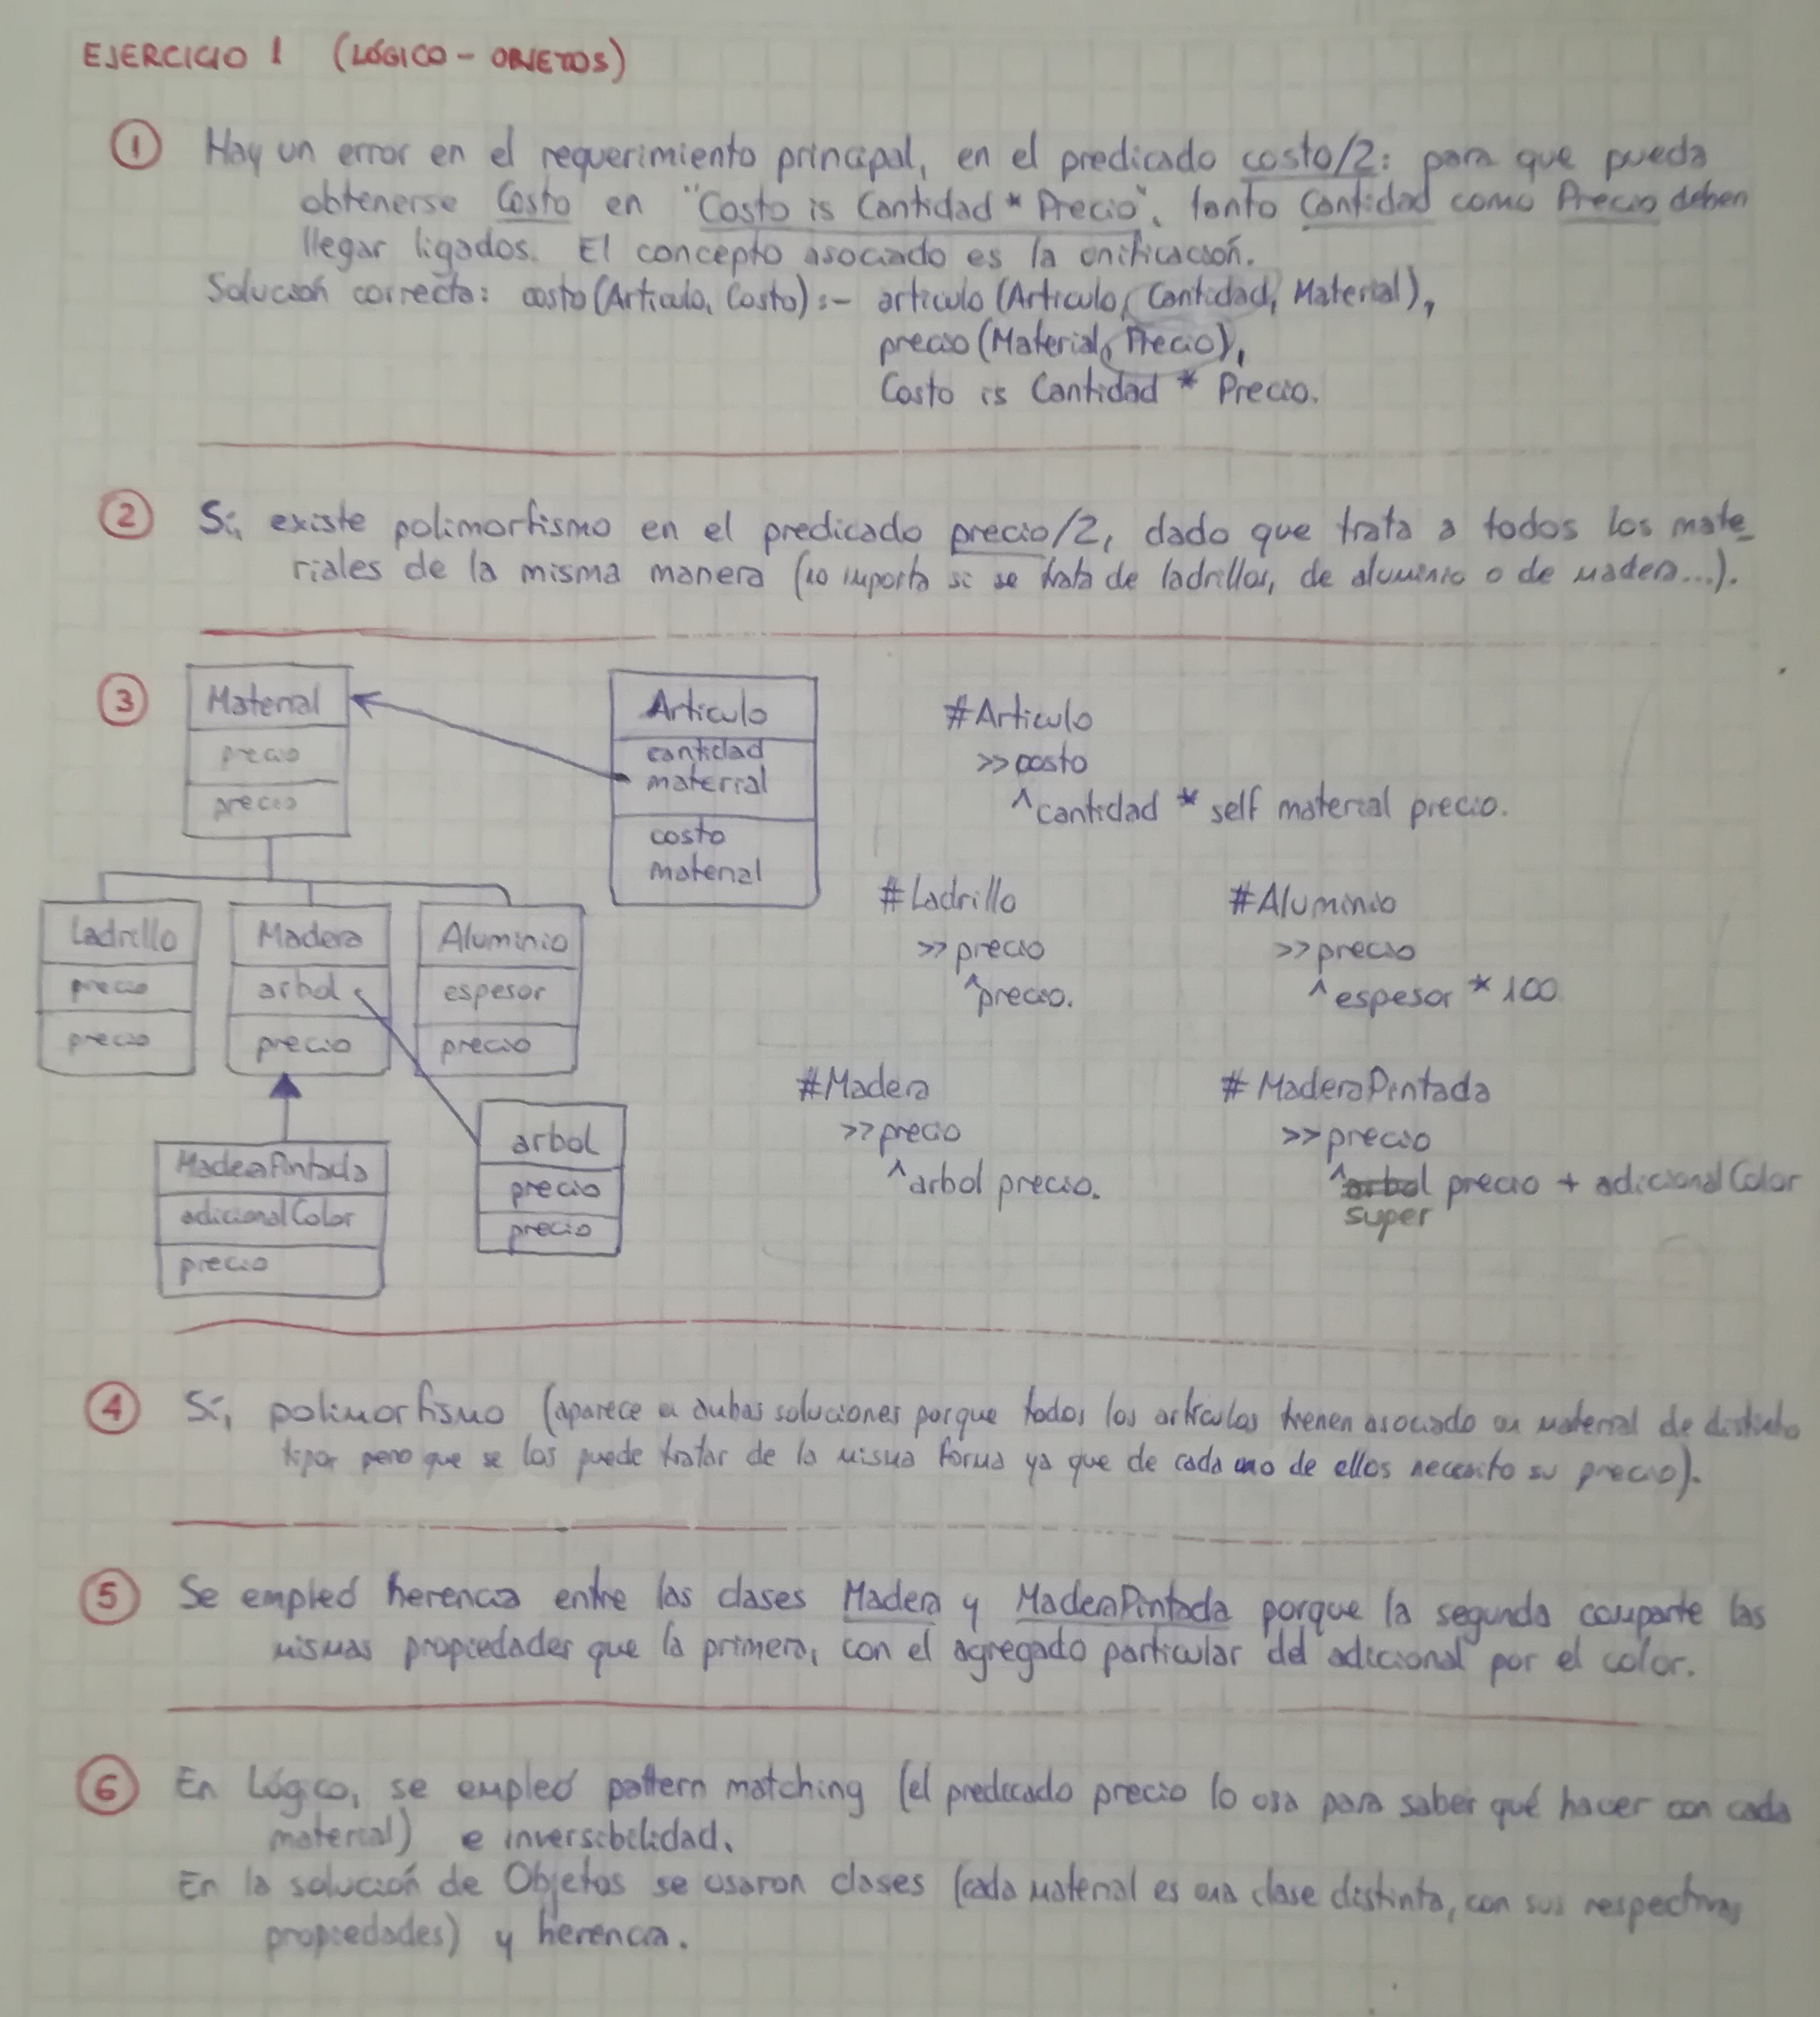 EJERCICIO 1 (LÓGICO - OBJETOS)
① Hay un error en el requerimiento principal, en el predicado costo/2: para que pueda
obtenerse Costo en "Costo is Cantidad * Precio", tanto Cantidad como Precio deben
llegar ligados. El concepto asociado es la unificación.
Solución correcta: costo(Articulo, Costo) :- articulo(Articulo, Cantidad, Material),
precio(Material, Precio),
Costo is Cantidad * Precio.
② Sí, existe polimorfismo en el predicado precio/2, dado que trata a todos los mate-
riales de la misma manera (no importa si se trata de ladrillos, de aluminio o de madera...).
③
Material
precio
precio
Articulo
cantidad
material
costo
material
#Articulo
>>costo
^cantidad * self material precio.
Ladrillo
precio
precio
Madera
arbol
precio
Aluminio
espesor
precio
#Ladrillo
>>precio
^precio.
#Aluminio
>>precio
^espesor * 100
MaderaPintada
adicionalColor
precio
arbol
precio
precio
#Madera
>>precio
^arbol precio.
#MaderaPintada
>>precio
^arbol precio + adicionalColor
super
④ Sí, polimorfismo (aparece en ambas soluciones porque todos los artículos tienen asociado un material de distinto
tipo, pero que se los puede tratar de la misma forma ya que de cada uno de ellos necesito su precio).
⑤ Se empleó herencia entre las clases Madera y MaderaPintada porque la segunda comparte las
mismas propiedades que la primera, con el agregado particular del adicional por el color.
⑥ En Lógico, se empleó pattern matching (el predicado precio lo usa para saber qué hacer con cada
material) e inversibilidad.
En la solución de Objetos se usaron clases (cada material es una clase distinta, con sus respectivas
propiedades) y herencia.